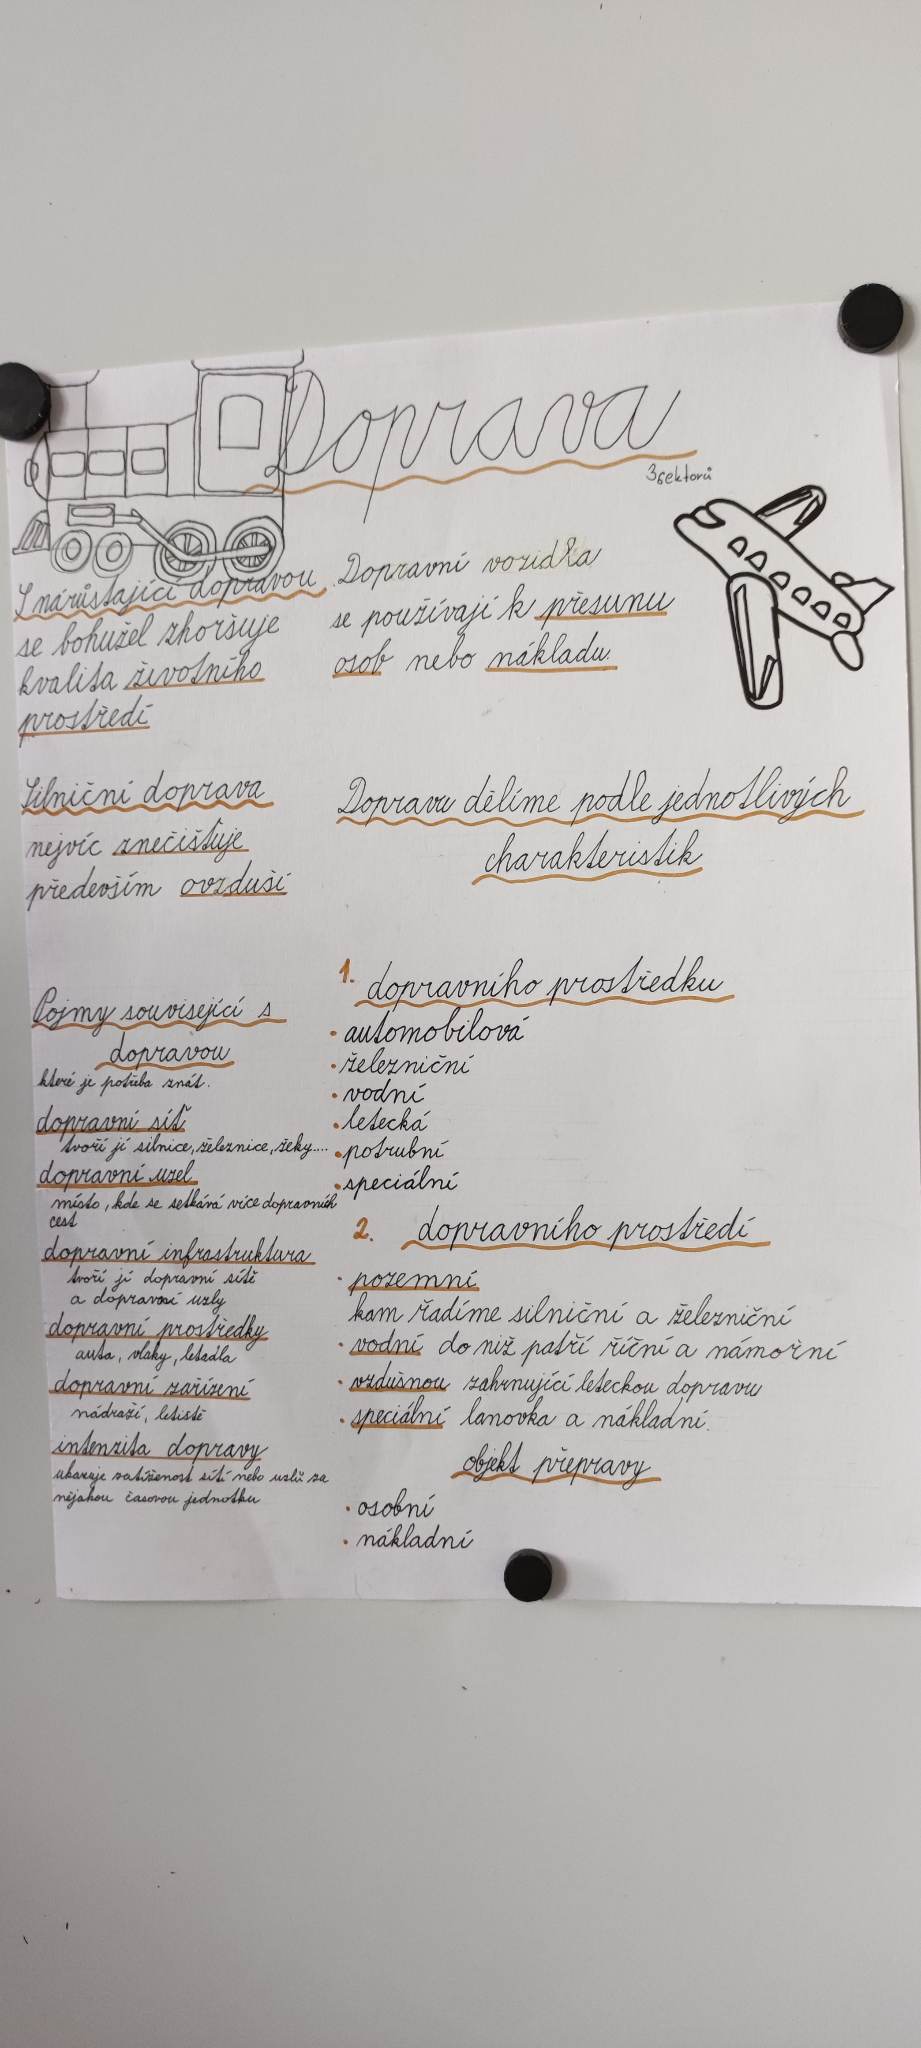 Doprava
3sektorů
S narůstající dopravou
se bohužel zhoršuje
kvalita životního
prostředí
Dopravní vozidla
se používají k přesunu
osob nebo nákladu.
Silniční doprava
nejvíc znečišťuje
především ovzduší
Dopravu dělíme podle jednotlivých
charakteristik
Pojmy související s
dopravou
které je potřeba znát.
dopravní síť
tvoří jí silnice, železnice, řeky....
dopravní uzel
místo, kde se setkává více dopravních
cest
dopravní infrastruktura
tvoří jí dopravní sítě
a dopravní uzly
dopravní prostředky
auta, vlaky, letadla
dopravní zařízení
nádraží, letiště
intenzita dopravy
ukazuje vatíženost sítí nebo uzlů za
nějakou časovou jednotku
1. dopravního prostředku
• automobilová
• železniční
• vodní
• letecká
• potrubní
• speciální
2. dopravního prostředí
• pozemní
kam řadíme silniční a železniční
• vodní do níž patří říční a námořní
• vzdušnou zahrnující leteckou dopravu
• speciální lanovka a nákladní.
objekt přepravy
• osobní
• nákladní